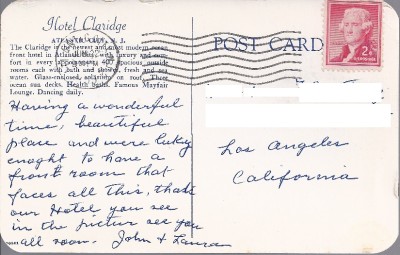 Hotel Claridge
ATLANTIC CITY, N. J.
The Claridge is the newest and most modern ocean
front hotel in Atlantic City, with luxury and com-
fort in every appointment. 400 spacious outside
rooms each with bath and shower, fresh and sea
water. Glass-enclosed solarium on roof. Three
ocean sun decks. Health baths. Famous Mayfair
Lounge. Dancing daily.
POST CARD
2¢
Having a wonderful
time, beautiful
place and were lucky
enoght to have a
front room that
faces all this, thats
our Hotel you see
in the pictur see you
all soon. John + Laura
Los Angeles
California